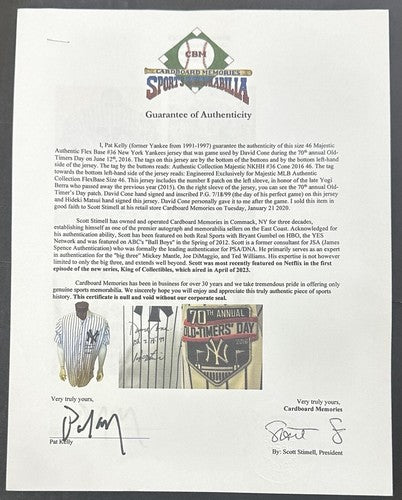 CBM
CARDBOARD MEMORIES
SPORTS MEMORABILIA
Guarantee of Authenticity
I, Pat Kelly (former Yankee from 1991-1997) guarantee the authenticity of this size 46 Majestic
Authentic Flex Base #36 New York Yankees jersey that was game used by David Cone during the 70th annual Old-
Timers Day on June 12th, 2016. The tags on this jersey are by the bottom of the buttons and by the bottom left-hand
side of the jersey. The tag by the buttons reads: Authentic Collection Majestic NKHH #36 Cone 2016 46. The tag
towards the bottom left-hand side of the jersey reads: Engineered Exclusively for Majestic MLB Authentic
Collection FlexBase Size 46. This jersey includes the number 8 patch on the left sleeve, in honor of the late Yogi
Berra who passed away the previous year (2015). On the right sleeve of the jersey, you can see the 70th annual Old-
Timer's Day patch. David Cone hand signed and inscribed P.G. 7/18/99 (the day of his perfect game) on this jersey
and Hideki Matsui hand signed this jersey. David Cone personally gave it to me after the game. I sold this item in
good faith to Scott Stimell at his retail store Cardboard Memories on Tuesday, January 21 2020.
Scott Stimell has owned and operated Cardboard Memories in Commack, NY for three decades,
establishing himself as one of the premier autograph and memorabilia sellers on the East Coast. Acknowledged for
his authentication ability, Scott has been featured on both Real Sports with Bryant Gumbel on HBO, the YES
Network and was featured on ABC's "Ball Boys" in the Spring of 2012. Scott is a former consultant for JSA (James
Spence Authentication) who was formally the leading authenticator for PSA/DNA. He primarily serves as an expert
in authentication for the "big three" Mickey Mantle, Joe DiMaggio, and Ted Williams. His expertise is not however
limited to only the big three, and extends well beyond. Scott was most recently featured on Netflix in the first
episode of the new series, King of Collectibles, which aired in April of 2023.
Cardboard Memories has been in business for over 30 years and we take tremendous pride in offering only
genuine sports memorabilia. We sincerely hope you will enjoy and appreciate this truly authentic piece of sports
history. This certificate is null and void without our corporate seal.
70TH ANNUAL
OLD-TIMERS' DAY
NY
2016
Very truly yours,
Pat Kelly
Very truly yours,
Cardboard Memories
By: Scott Stimell, President